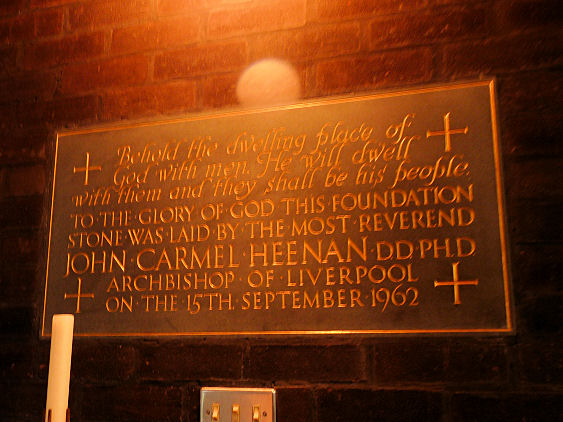 Behold the dwelling place of
God with men. He will dwell
with them and they shall be his people.
TO THE GLORY OF GOD THIS FOUNDATION
STONE WAS LAID BY THE MOST REVEREND
JOHN CARMEL HEENAN, DD PH.D
ARCHBISHOP OF LIVERPOOL
ON THE 15TH. SEPTEMBER 1962